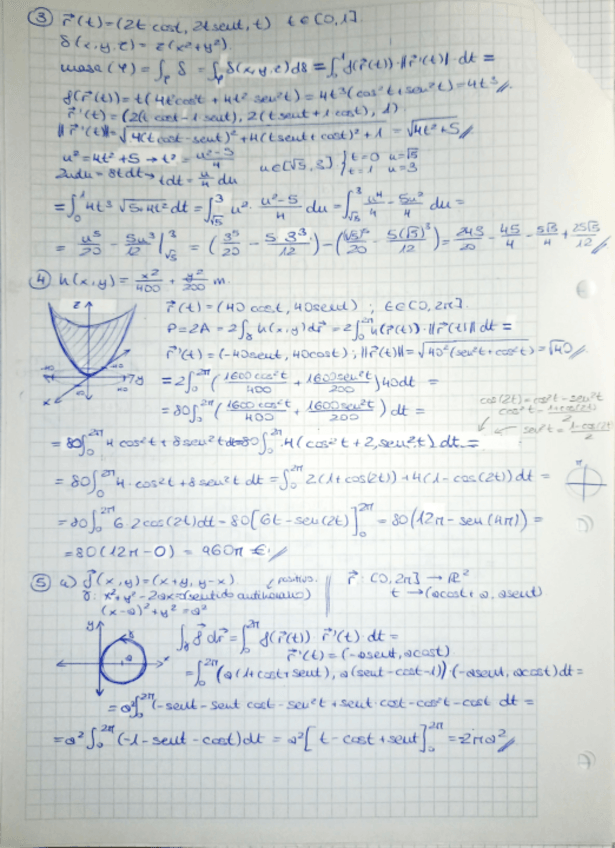 ③ r⃗(t)=(2t cost, 2t sent, t) t∈[0,1].
δ(x,y,z)=z(x²+y²)
masa(γ)=∫γ δ = ∫γ δ(x,y,z)ds = ∫₀¹ f(r⃗(t))·||r⃗'(t)||·dt =
f(r⃗(t))=t(4t²cos²t + 4t² sen²t) = 4t³(cos²t+sen²t)=4t³//
r⃗'(t)=(2(cost-t sent), 2(t sent+1 cost), 1)
||r⃗'(t)||=√4(t cost-sent)²+4(t sent+cost)²+1 = √4t²+5//
u²=4t²+5 → t²= u²-5/4 u∈[√5,3] { t=0 u=√5
2udu=8tdt→ tdt= u/4 du t=1 u=3
=∫₀¹ 4t³ √5+4t² dt = ∫√5³ u²· u²-5/4 du = ∫√5³ u⁴/4 - 5u²/4 du =
= u⁵/20 - 5u³/12 |√5³ = (3⁵/20 - 5·3³/12) - ((√5)⁵/20 - 5(√5)³/12) = 243/20 - 45/4 - 5√5/4 + 25√5/12 //
④ h(x,y)= x²/400 + y²/200 m.
z
r⃗(t)=(40cost, 40sent) ; t∈[0,2π]
P=2A=2∫γ h(x,y)dr⃗=2∫₀²π h(r⃗(t))·||r⃗'(t)|| dt =
r⃗'(t)=(-40sent, 40cost); ||r⃗'(t)||=√40²(sen²t+cos²t) = √40//
x y
=2∫₀²π (1600cos²t/400 + 1600sen²t/200)40dt =
=80∫₀²π (1600cos²t/400 + 1600sen²t/200) dt =
cos(2t)=cos²t-sen²t
cos²t= 1+cos(2t)/2
sen²t= 1-cos(2t)/2
=80∫₀²π 4cos²t+8sen²t dt=80∫₀²π 4(cos²t+2sen²t) dt =
=80∫₀²π 4·cos²t+8sen²t dt =∫₀²π 2(1+cos(2t))+4(1-cos(2t)) dt =
=80∫₀²π 6-2cos(2t)dt=80[6t-sen(2t)]₀²π = 80(12π-sen(4π)) =
=80(12π-0) = 960π €//
⑤ a) f⃗(x,y)=(x+y, y-x) (positivo. r⃗: [0,2π] → R²
γ: x²+y²-2ax=0(sentido antihorario) t →(acost+a, asent)
(x-a)²+y²=a²
y
∫γ f⃗ dr⃗ = ∫₀²π f(r⃗(t))·r⃗'(t)·dt =
r⃗'(t)=(-asent, acost)
a x
=∫₀²π (a(1+cost+sent), a(sent-cost-1))·(-asent, acost)dt =
=a²∫₀²π (-sent-sent cost-sen²t+sent·cost-cos²t-cost dt =
=a²∫₀²π (-1-sent-cost)dt = a²[t-cost+sent]₀²π =2πa²//